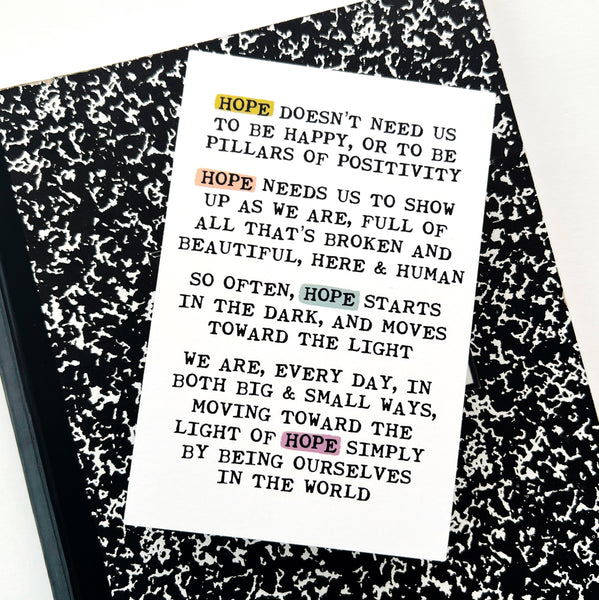 HOPE DOESN'T NEED US
TO BE HAPPY, OR TO BE
PILLARS OF POSITIVITY
HOPE NEEDS US TO SHOW
UP AS WE ARE, FULL OF
ALL THAT'S BROKEN AND
BEAUTIFUL, HERE & HUMAN
SO OFTEN, HOPE STARTS
IN THE DARK, AND MOVES
TOWARD THE LIGHT
WE ARE, EVERY DAY, IN
BOTH BIG & SMALL WAYS,
MOVING TOWARD THE
LIGHT OF HOPE SIMPLY
BY BEING OURSELVES
IN THE WORLD